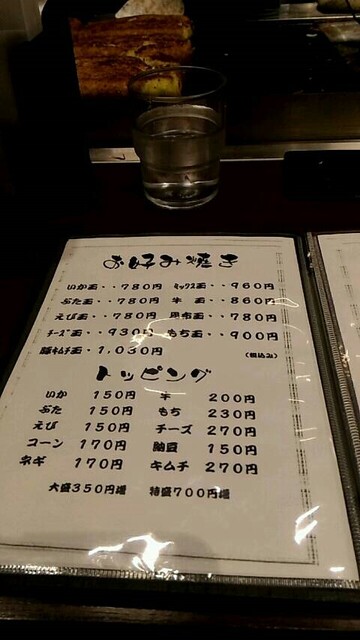 お好み焼き
いか玉・・780円 ミックス玉・・960円
ぶた玉・・780円 牛 玉・・860円
えび玉・・780円 昆布玉・・780円
チーズ玉・・930円 もち玉・・900円
豚キムチ玉・1,030円 (税込み)
トッピング
いか 150円 牛 200円
ぶた 150円 もち 230円
えび 150円 チーズ 270円
コーン 170円 納豆 150円
ネギ 170円 キムチ 270円
大盛350円増 特盛700円増